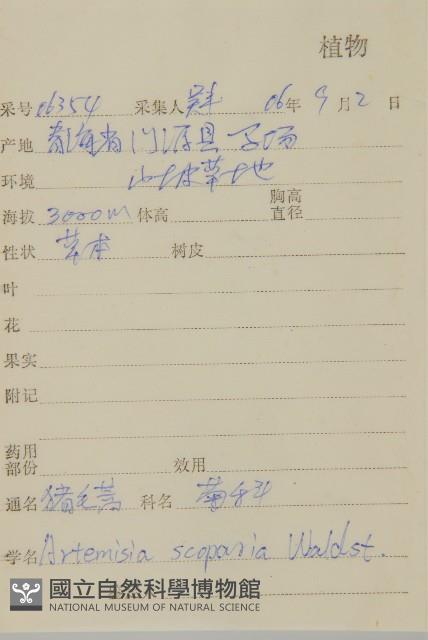 植物
采号 06354 采集人 06年 9月 2日
产地 青海省门源县
环境 山坡草地
海拔 3000m 体高 胸高直径
性状 草本 树皮
叶
花
果实
附记
药用部份 效用
通名 猪毛蒿 科名 菊科
学名 Artemisia scoparia Waldst.
國立自然科學博物館
NATIONAL MUSEUM OF NATURAL SCIENCE